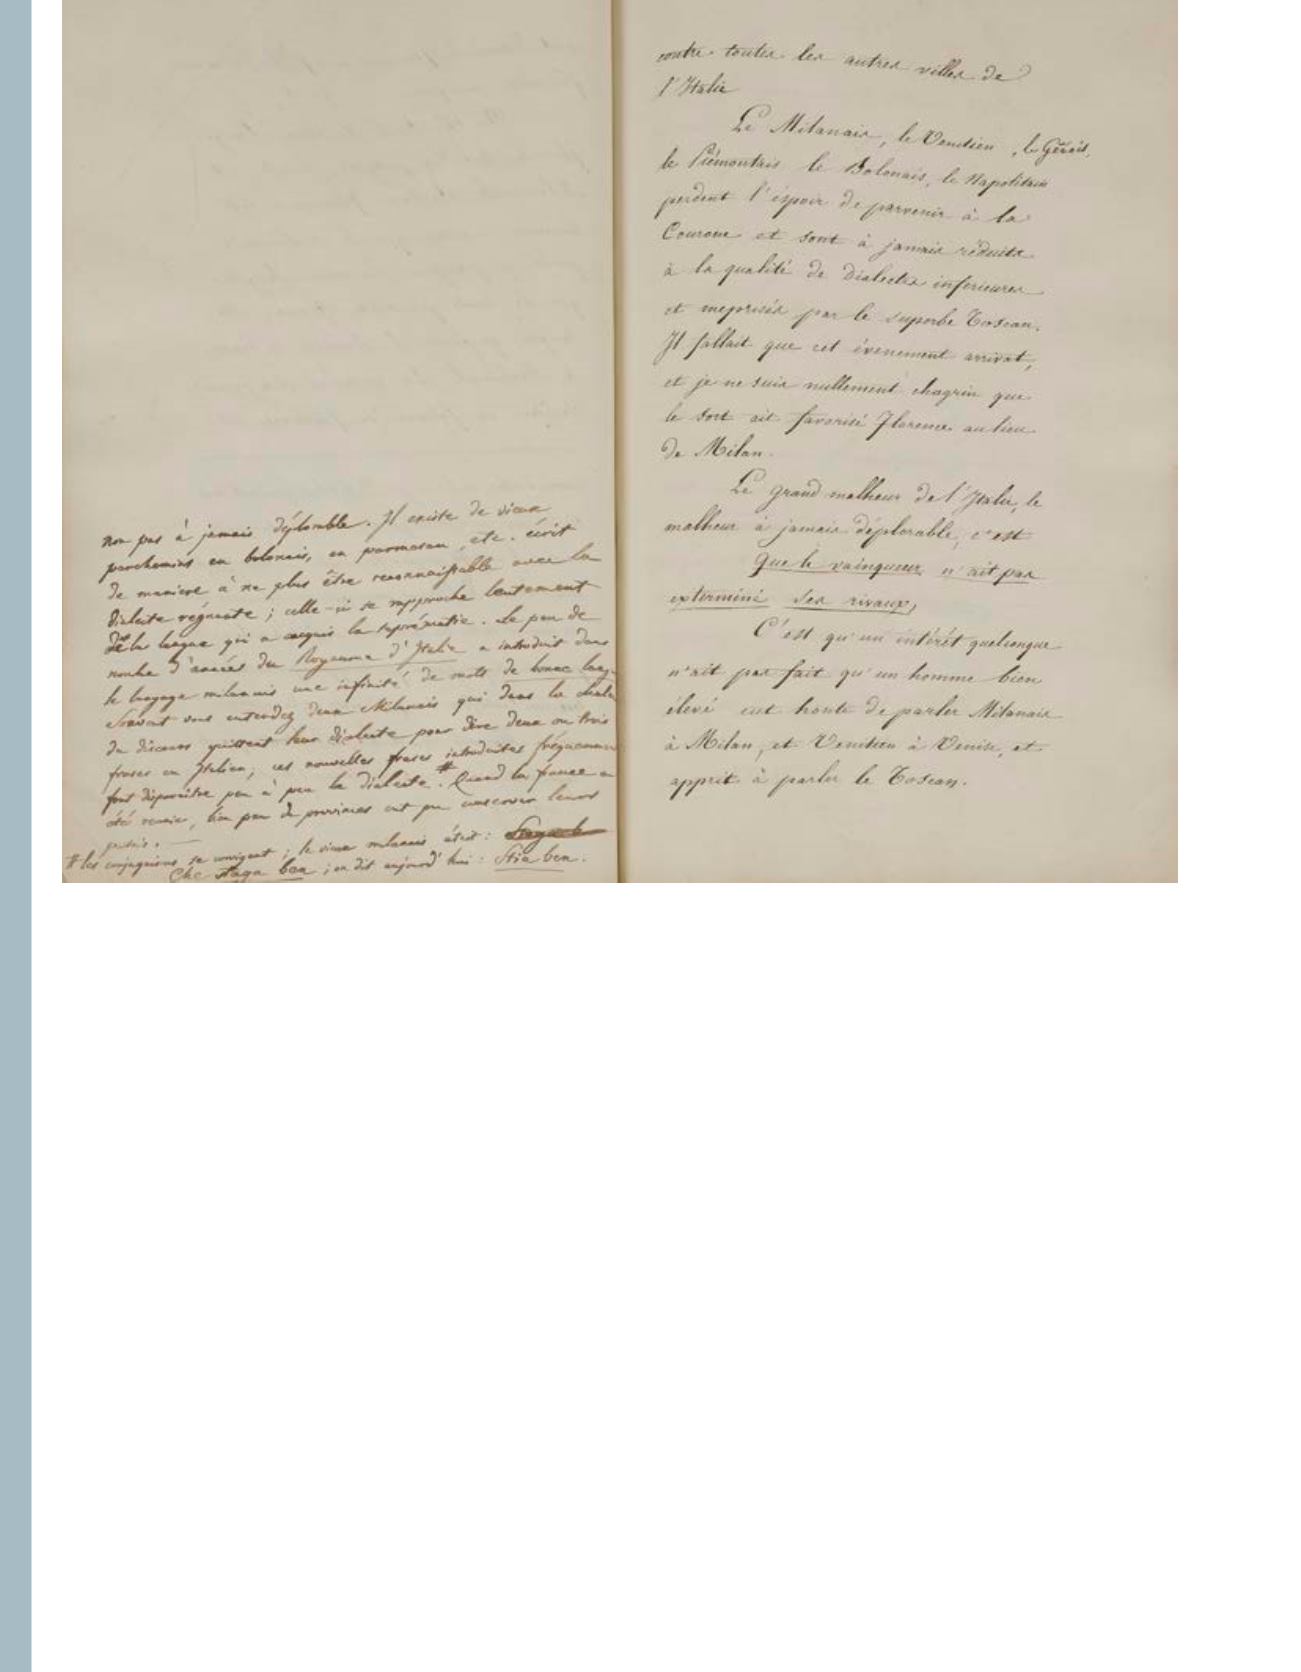 non pas à jamais déplorable. Il existe de vieux
parchemins en bolonais, en parmesan, etc. écrit
de maniere à ne plus être reconnaissable avec la
dialecte régnante ; celle-ci se rapproche lentement
de la langue qui a acquis la suprématie. Le peu de
nombre d'années du Royaume d'Italie a introduit dans
le langage milanais une infinité de mots de bonne lang.
Souvent vous entendez deux Milanais qui dans la chaleur
du discours quittent leur dialecte pour dire deux ou trois
frases en Italien, ces nouvelles frases introduites fréquemment
font disparaitre peu à peu la dialecte. # Quand la france a
été réunie, bien peu de provinces ont pu conserver leurs
patois. —
# les conjugaisons se corrigent ; le vieux milanais était :
Che staga ben ; on dit aujourd'hui : Stia ben.
contre toutes les autres villes de
l'Italie
Le Milanais, le Venitien, le Génois,
le Piémontais le Bolonais, le Napolitain
perdent l'éspoir de parvenir à la
Couronne et sont à jamais réduits
à la qualité de dialectes inferieures
et meprisés par le superbe Toscan.
Il fallait que cet évenement arrivat,
et je ne suis nullement chagrin que
le sort ait favorisé Florence au lieu
de Milan.
Le grand malheur de l'Italie, le
malheur à jamais déplorable, c'est
Que le vainqueur n'ait pas
exterminé ses rivaux,
C'est qu'un intérêt quelconque
n'ait pas fait qu'un homme bien
élevé eut honte de parler Milanais
à Milan, et Venitien à Venise, et
apprit à parler le Toscan.